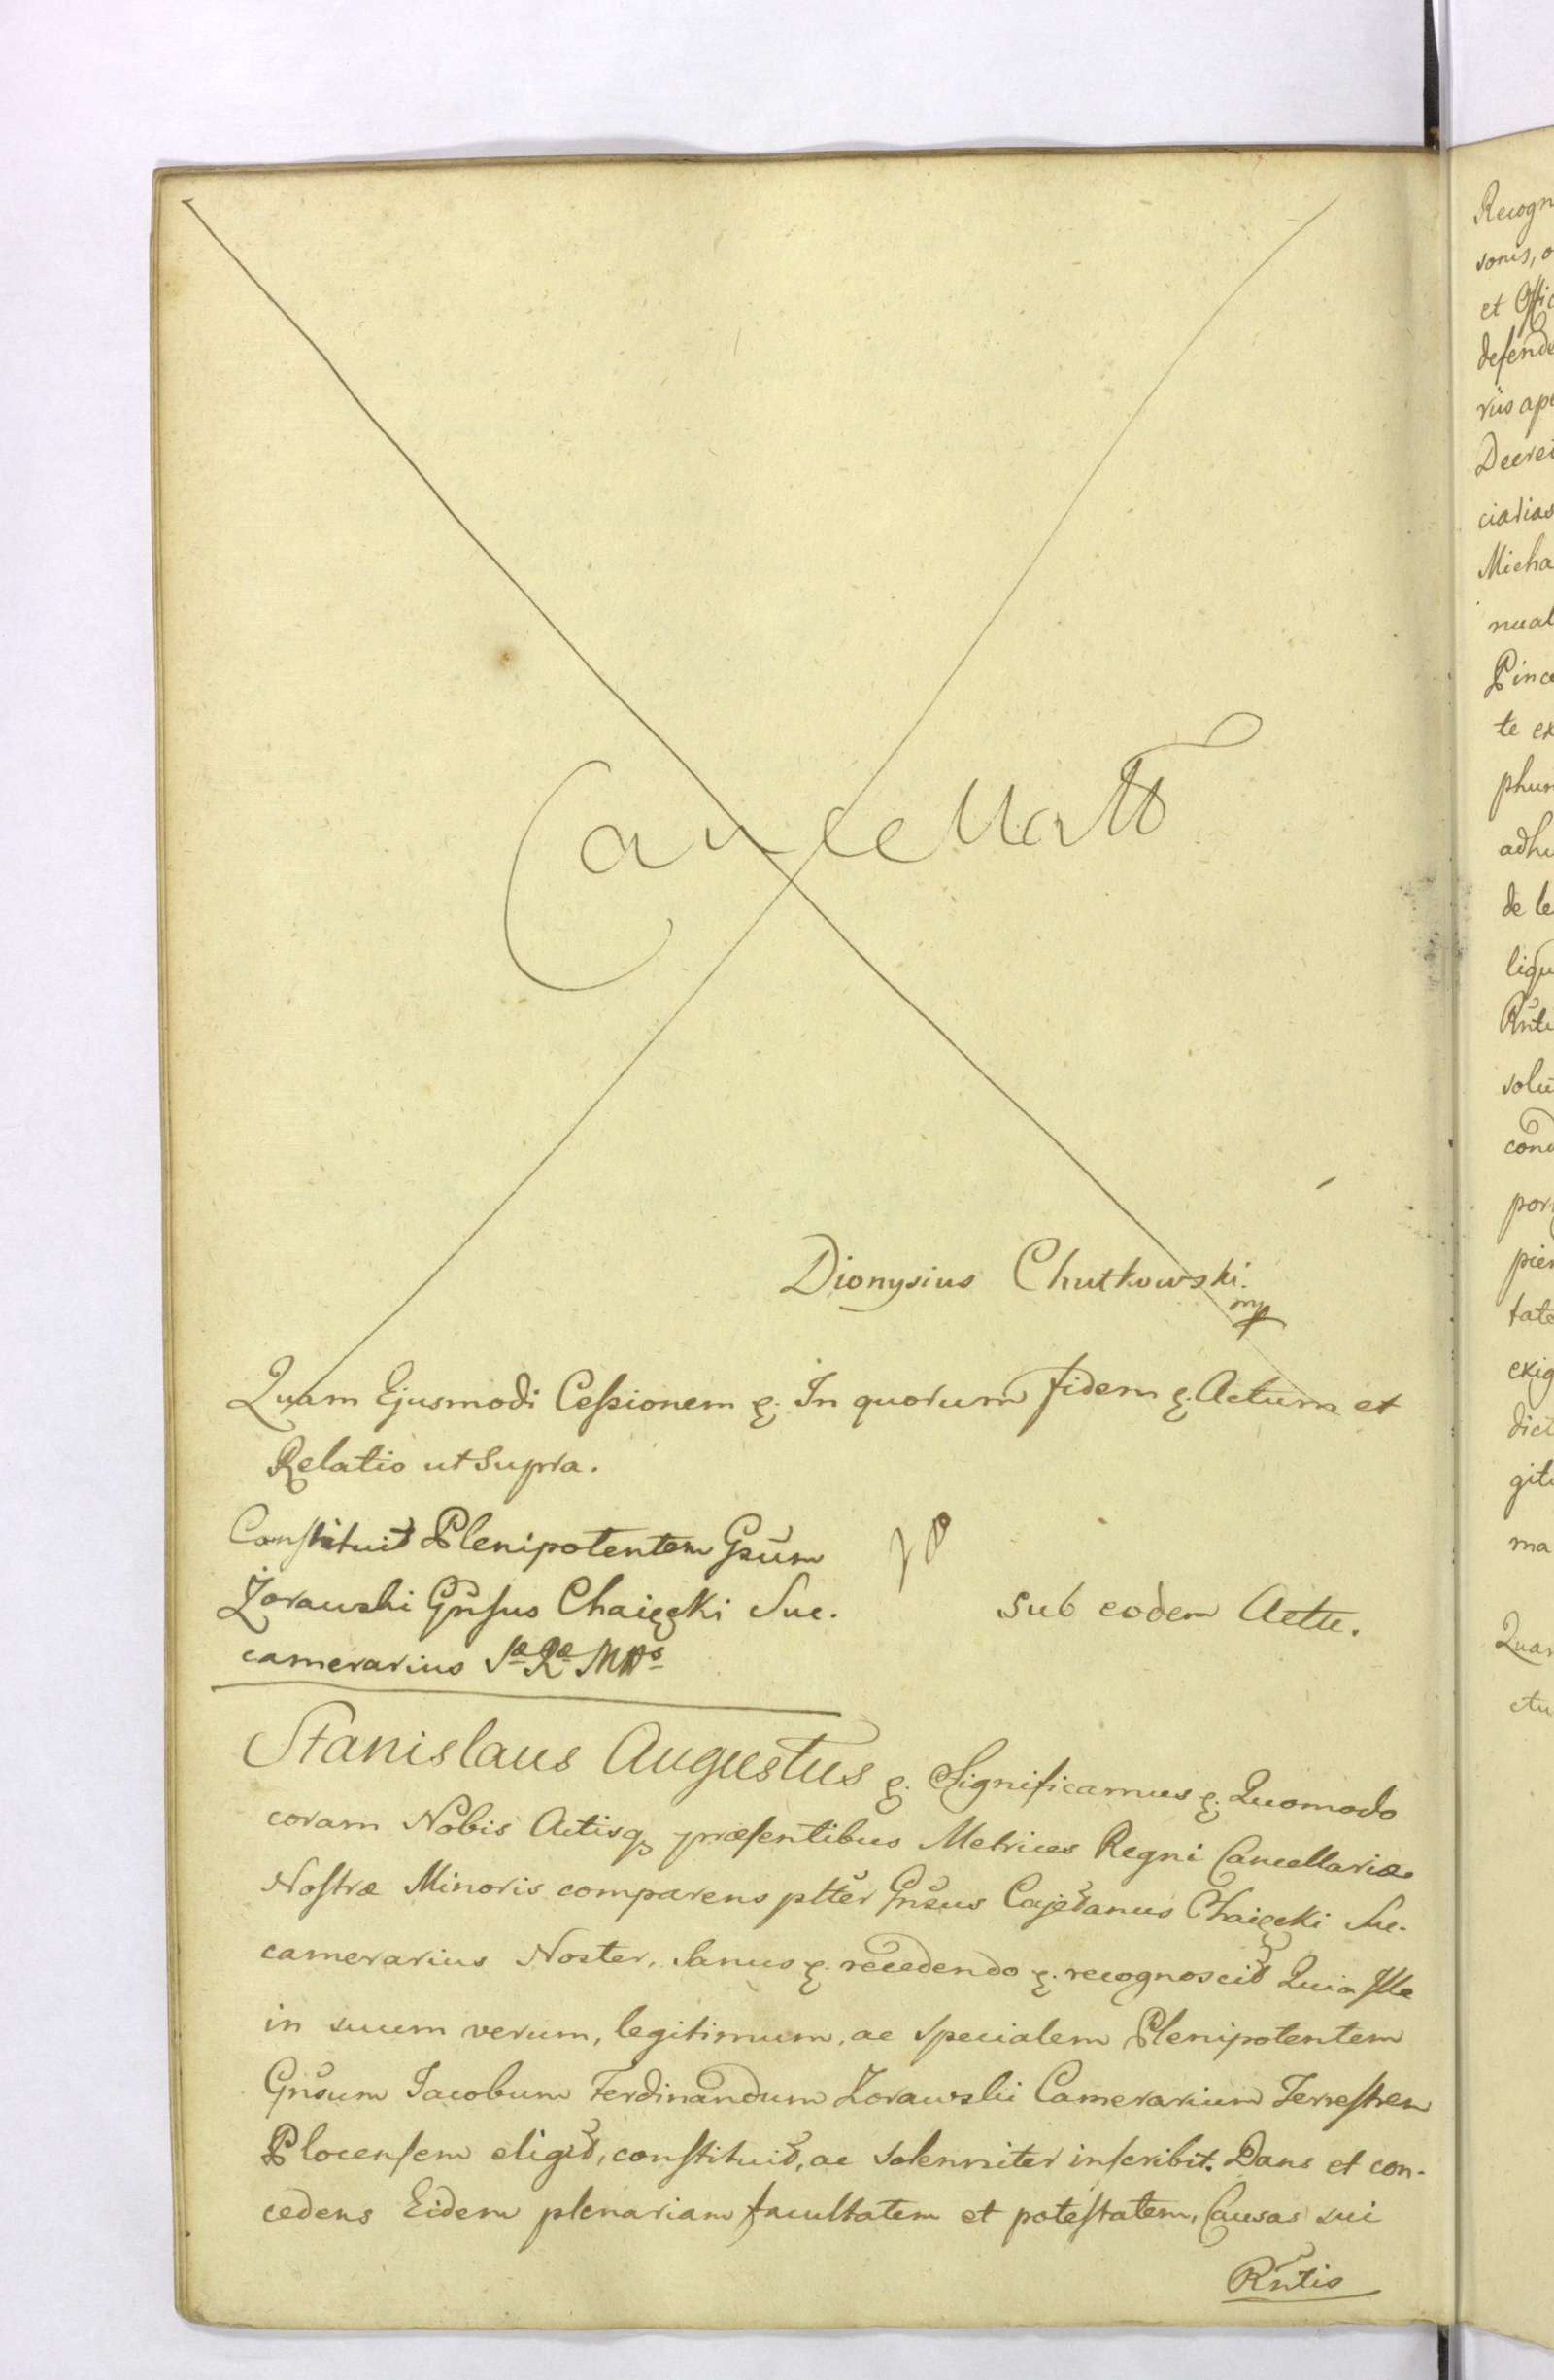 Cancellatt
Dionysius Chutkowski.
mp
Quam Ejusmodi Cessionem &. In quorum fidem &. Actum et
Relatio ut Supra.
Constituit Plenipotentem Gsum
Żorawski Gnsus Chaięcki Suc.
camerarius Sæ Ræ Mtis
sub eodem Actu.
Stanislaus Augustus &. Significamus &. Quomodo
coram Nobis Actisq præsentibus Metrices Regni Cancellariæ
Nostræ Minoris comparens pltter Gnsus Cajetanus Chaięcki Suc.
camerarius Noster, Sanus &. recedendo &. recognoscit Quia Ille
in suum verum, legitimum, ac specialem Plenipotentem
Gnsum Jacobum Ferdinandum Zorawski Camerarium Terrestrem
Plocensem eligit, constituit, ac solenniter inscribit. Dans et con-
cedens Eidem plenariam facultatem et potestatem, Causas sui
Rntis
Recogn
sonis, o
et Offic
defende
riis ape
Decret
ciarias
Micha
nual
Pince
te ex
phum
adhu
de le
liqu
Rnti
solu
cond
porr
pien
tate
exig
dict
giti
ma
Quam
ctu